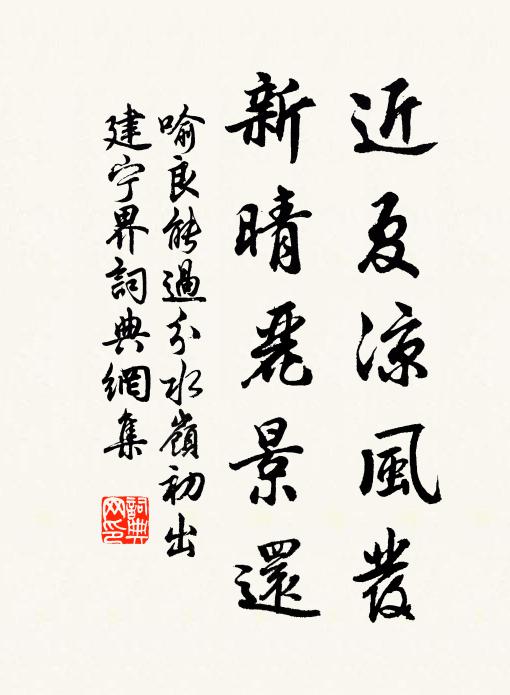 近夏涼風發
新晴麗景還
喻良能過分水嶺初出
建宁界詞典網集
詞典網印